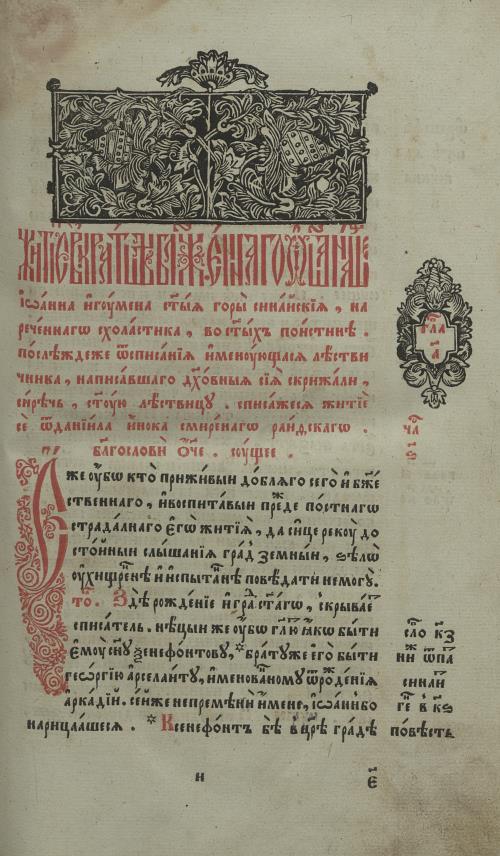 Житїе вкратцѣ бл҃женнагѡ ѻц҃а на́шегѡ
їѡа́нна и҆гоу́мена ст҃ы́ѧ горы̀ сина́йскїѧ , на
рече́ннагѡ схола́стика , во ст҃ы́хъ пои́стинѣ .
посл̾ѣ́ждеже ѿписа́нїѧ и҆менꙋ́ющаѧсѧ лѣ́стви
чника , написа́вшаго дх҃о́вныѧ сїѧ̀ скрижа́ли ,
си́рѣчь , ст҃ꙋ́ю лѣ́ствицꙋ . списа́жесѧ житїѐ
сѐ ѿ данїи́ла и҆́нока смире́нагѡ раиѳ́скагѡ .
благослови́ ѻ҆́ч҃е .
же ᲂу҆́бѡ кто̀ прижи́выи до́блѧго сего̀ и҆ бж҃е
ственнаго , и҆ воспита́выи пре́жⷣе по́стнаго
страда́лнаго є҆гѡ̀ житїѧ̀ , да си́це рекꙋ̀ до
сто́йныи слы́шанїѧ гра́дъ земны́и , ѕѣлѡ̀
ᲂу҆хищре́ннѣ и҆ и҆спыта́ннѣ повѣ́дати не могꙋ̀ .
то̀ . Здѣ̀ рожде́нїе и҆ гра́дъ ст҃а́гѡ , скрыва́етъ
списа́тель . нѣ́цыи же ᲂу҆́бѡ гл҃ютъ ꙗ҆́кѡ бы́ти
є҆мꙋ̀ сн҃ꙋ ѯенефо́нтовꙋ , * бра́тꙋ же є҆го̀ бы́ти
гео́ргїю арсела́итꙋ , и҆менова́номꙋ ѿ рожде́нїѧ
арка́дїй . се́й же непремѣ́ннѣ и҆́мене , їѡа́ннъ бо
нарица́шесѧ . * Ксенефо́нтъ бѣ̀ в цр҃ѣ гра́дѣ
гла
а҃
сло́ к҃з
ни́ ѿ па
сина́и
гѐ в к҃ѕ
по́вѣсть
н
є҃